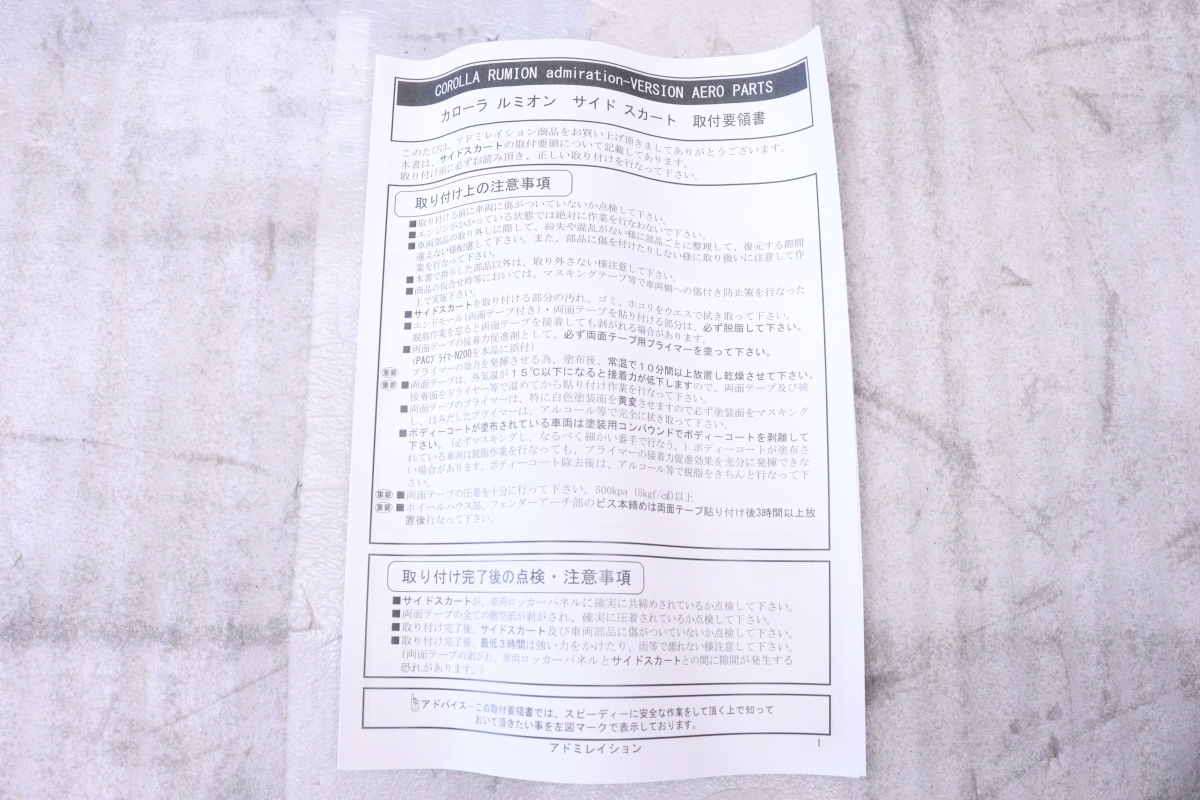 COROLLA RUMION admiration-VERSION AERO PARTS
カローラ ルミオン　サイド スカート　取付要領書
このたびは、アドミレイション商品をお買い上げ頂きましてありがとうございます。
本書は、サイドスカートの取付要領について記載してあります。
取り付け前に必ずお読み頂き、正しい取り付けを行なって下さい。
取り付け上の注意事項
■取り付ける前に車両に傷がついていないか点検して下さい。
■エンジンがかかっている状態では絶対に作業を行なわないで下さい。
■車両部品の取り外しに際して、紛失や混乱がない様に部品ごとに整理して、復元する際間
違えない様配慮して下さい。また、部品に傷を付けたりしない様に取り扱いに注意して作
業を行なって下さい。
■本書で指示した部品以外は、取り外さない様注意して下さい。
■商品の仮合せ時等においては、マスキングテープ等で車両側への傷付き防止策を行なった
上で実施下さい。
■サイドスカートを取り付ける部分の汚れ、ゴミ、ホコリをウエスで拭き取って下さい。
■エンドモール(両面テープ付き)・両面テープを貼り付ける部分は、必ず脱脂して下さい。
脱脂作業を怠ると両面テープを接着しても剥がれる場合があります。
■両面テープの接着力促進剤として、必ず両面テープ用プライマーを塗って下さい。
(PACﾌﾟﾗｲﾏｰN200を本品に添付)
重要 プライマーの効力を発揮させる為、塗布後、常温で１０分間以上放置し乾燥させて下さい。
重要 ■両面テープは、外気温が１５℃以下になると接着力が低下しますので、両面テープ及び被
接着面をドライヤー等で温めてから貼り付け作業を行なって下さい。
■両面テープのプライマーは、特に白色塗装面を黄変させますので必ず塗装面をマスキング
し、はみだしたプライマーは、アルコール等で完全に拭き取って下さい。
■ボディーコートが塗布されている車両は塗装用コンパウンドでボディーコートを剥離して
下さい。(必ずマスキングし、なるべく細かい番手で行なう。)ボディーコートが塗布さ
れている車両は脱脂作業を行なっても、プライマーの接着力促進効果を充分に発揮できな
い場合があります。ボディーコート除去後は、アルコール等で脱脂をきちんと行なって下
さい。
重要 ■両面テープの圧着を十分に行って下さい。500kpa (5kgf/㎠)以上
重要 ■ホイールハウス部、フェンダーアーチ部のビス本締めは両面テープ貼り付け後3時間以上放
置後行なって下さい。
取り付け完了後の点検・注意事項
■サイドスカートが、車両ロッカーパネルに確実に共締めされているか点検して下さい。
■両面テープの全ての離型紙が剥がされ、確実に圧着されているか点検して下さい。
■取り付け完了後、サイドスカート及び車両部品に傷がついていないか点検して下さい。
■取り付け完了後、最低３時間は強い力をかけたり、雨等で濡れない様注意して下さい。
(両面テープの剥がれ、車両ロッカーパネルとサイドスカートとの間に隙間が発生する
恐れがあります。)
アドバイス…この取付要領書では、スピーディーに安全な作業をして頂く上で知って
おいて頂きたい事を左図マークで表示しております。
アドミレイション
1